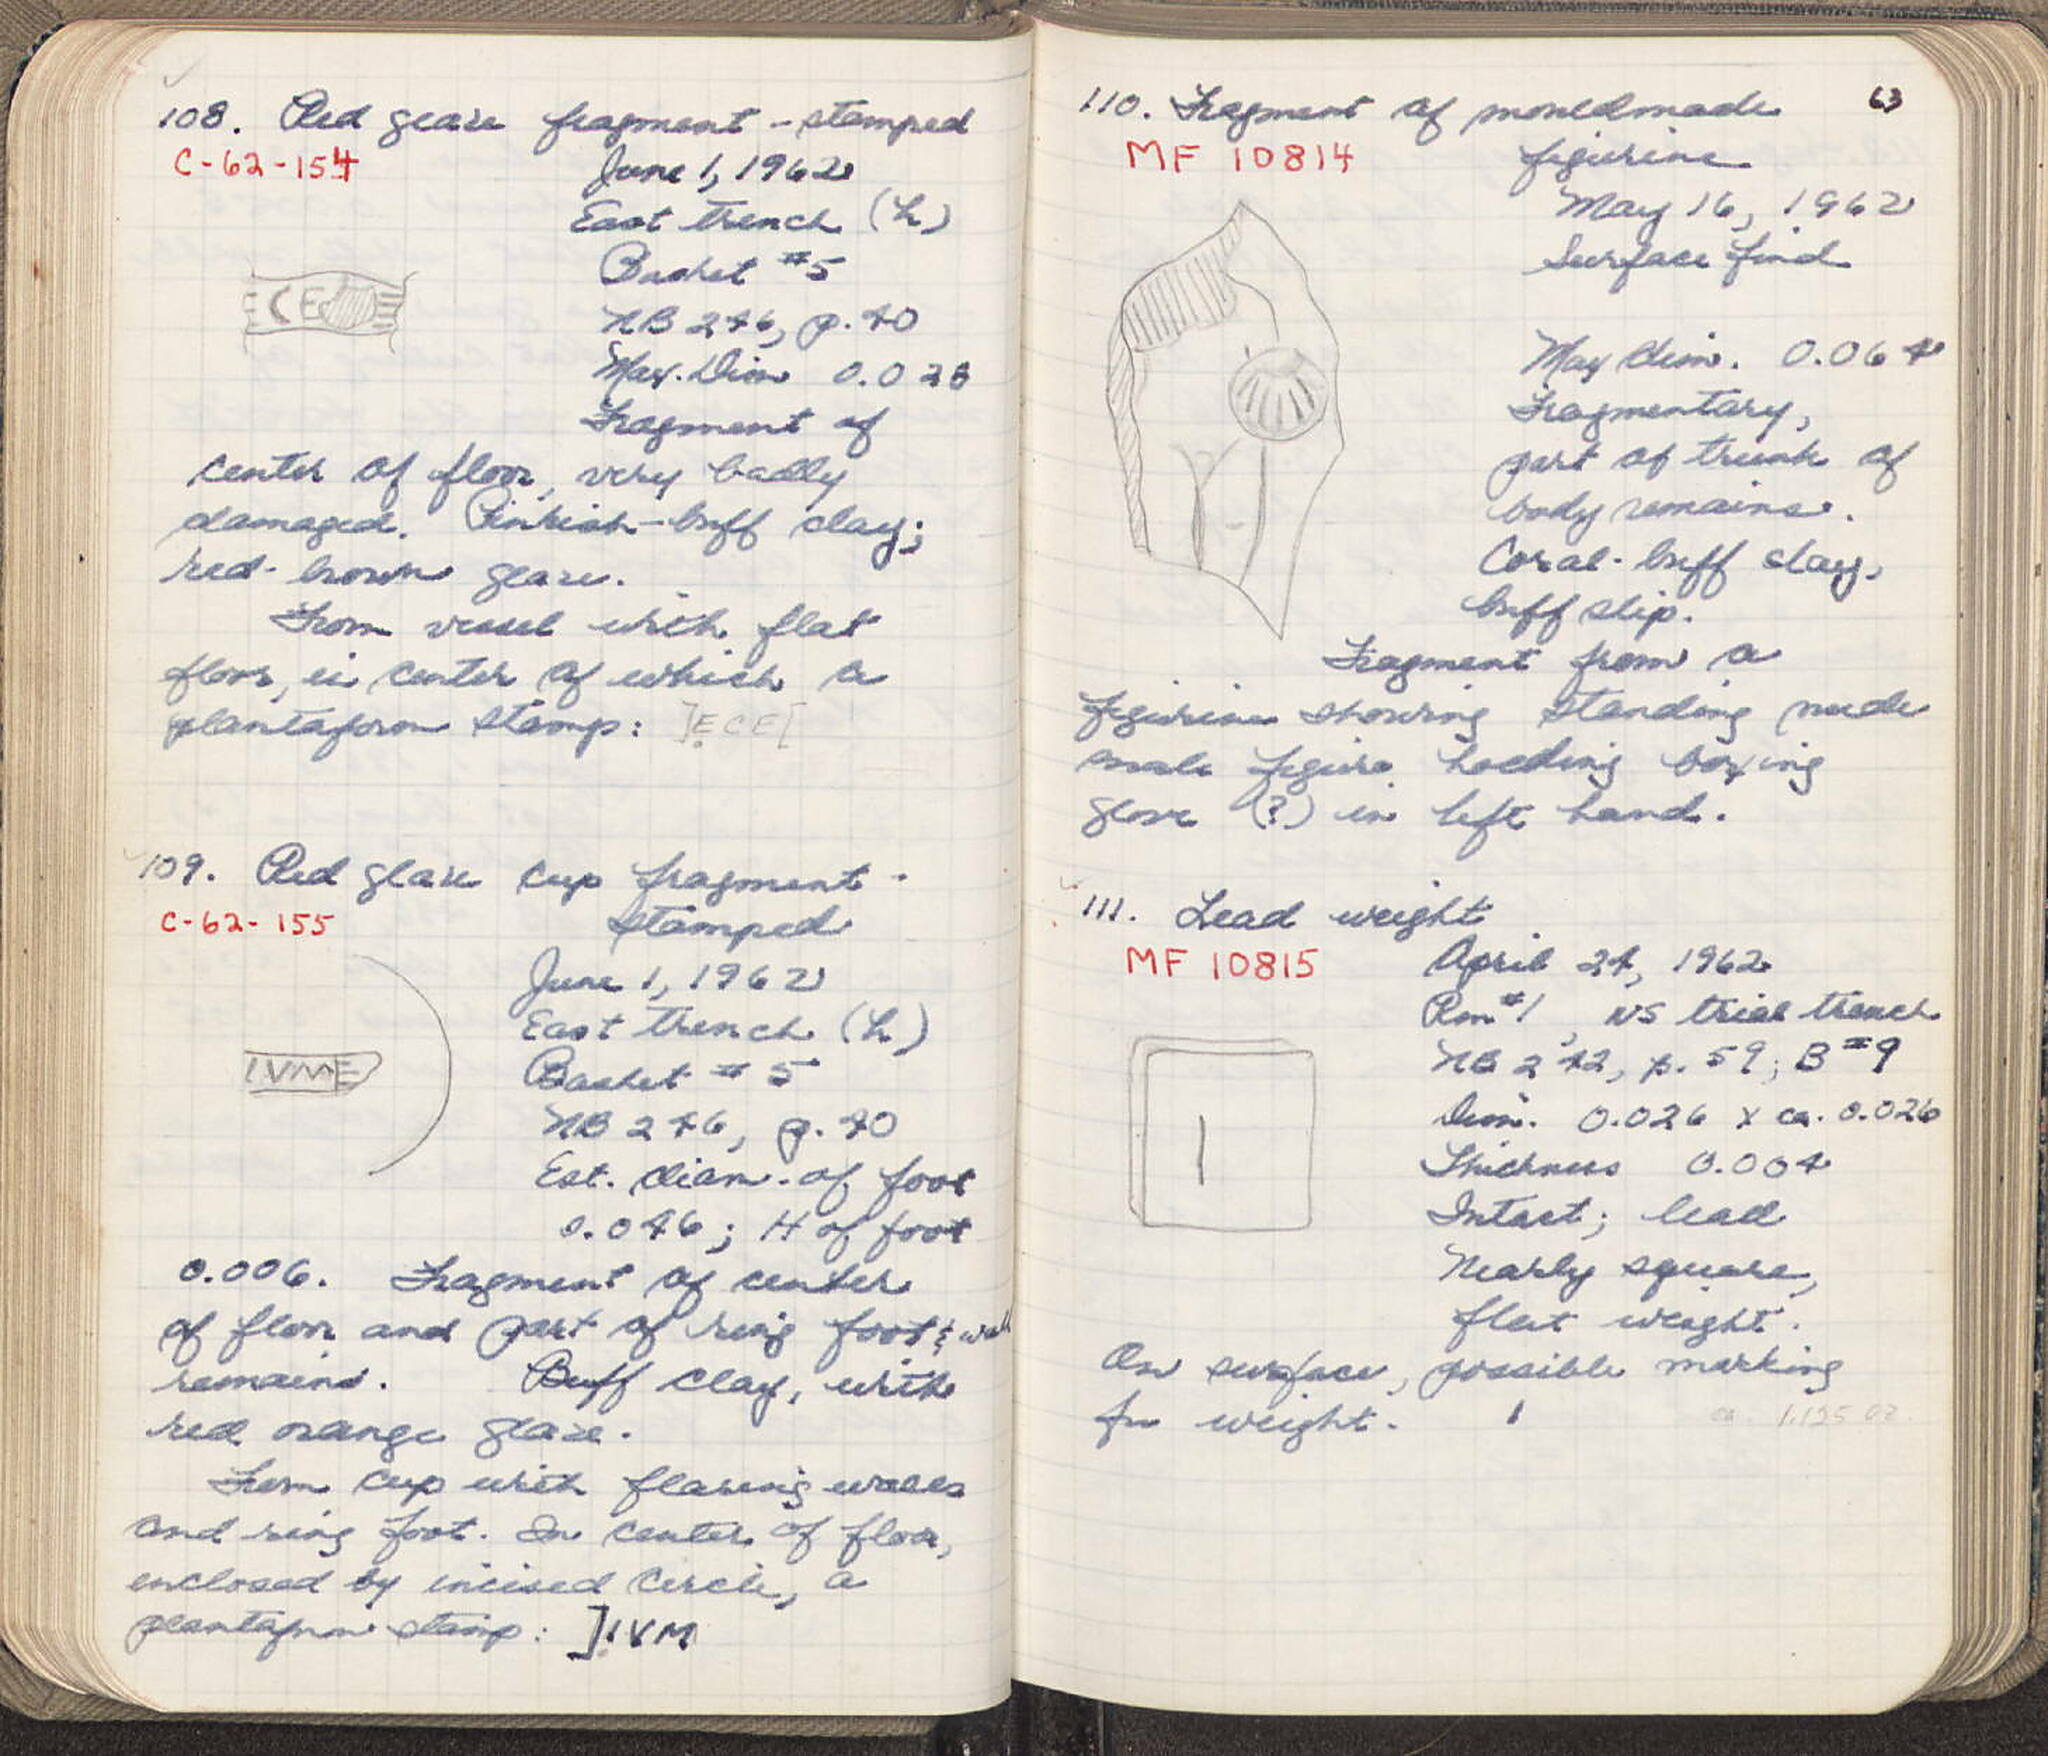 108. Red glaze fragment - stamped
C-62-154
June 1, 1962
East trench (h)
Basket #5
NB 246, p. 40
Max. Dim 0.028
Fragment of
CE
center of floor, very badly
damaged. Pinkish-buff clay;
red-brown glaze.
From vessel with flat
floor, in center of which a
plantaform stamp: ]ẸCE[
109. Red glaze cup fragment -
stamped
C-62-155
June 1, 1962
East trench (h)
Basket #5
IVME
NB 246, p. 40
Est. diam. of foot
0.046; H of foot
0.006. Fragment of center
of floor and part of ring foot & wall
remains. Buff clay, with
red orange glaze.
From cup with flaring walls
and ring foot. In center of floor,
enclosed by incised circle, a
plantaform stamp: ]ỊVM
63
110. Fragment of mouldmade
figurine
MF 10814
May 16, 1962
Surface find
Max dim. 0.064
Fragmentary,
part of trunk of
body remains.
Coral-buff clay,
buff slip.
Fragment from a
figurine showing standing nude
male figure holding boxing
glove (?) in left hand.
111. Lead weight
MF 10815
April 24, 1962
Rm #1, NS trial trench
NB 242, p. 59; B #9
Dim. 0.026 x ca. 0.026
Thickness 0.004
Intact; lead
Nearly square,
flat weight.
On surface, possible marking
for weight. I
ca. 1.125 oz.